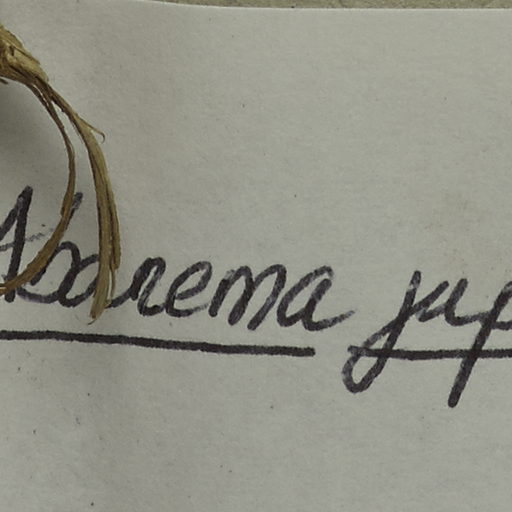 Abarema jup